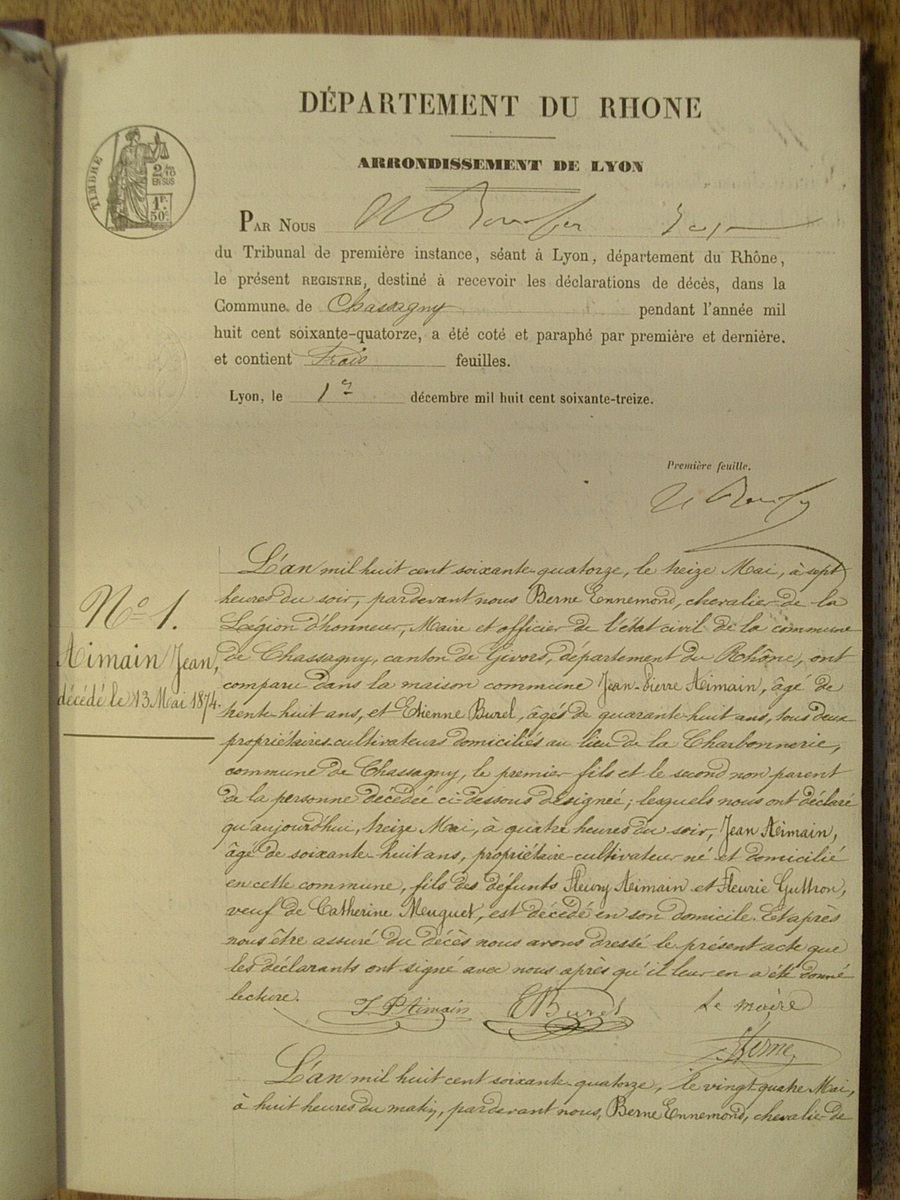 DÉPARTEMENT DU RHONE
ARRONDISSEMENT DE LYON
TIMBRE
2/10
EN SUS
1F.
50C.
PAR NOUS
du Tribunal de première instance, séant à Lyon, département du Rhône,
le présent REGISTRE, destiné à recevoir les déclarations de décès, dans la
Commune de Chassagny pendant l'année mil
huit cent soixante-quatorze, a été coté et paraphé par première et dernière.
et contient trois feuilles.
Lyon, le 1er décembre mil huit cent soixante-treize.
Première feuille.
N° 1.
Aimain Jean,
décédé le 13 Mai 1874.
L'an mil huit cent soixante quatorze, le treize Mai, à sept
heures du soir, pardevant nous Berne Ennemond, chevalier de la
Légion d'honneur, Maire et officier de l'état civil de la commune
de Chassagny, canton de Givors, département du Rhône, ont
comparu dans la maison commune Jean-Pierre Aimain, âgé de
trente-huit ans, et Etienne Burel, âgés de quarante-huit ans, tous deux
propriétaires-cultivateurs domiciliés au lieu de la Charbonnerie,
commune de Chassagny, le premier fils et le second non parent
de la personne décédée ci-dessous désignée; lesquels nous ont déclaré
qu'aujourd'hui, treize Mai, à quatre heures du soir, Jean Aimain,
âgé de soixante-huit ans, propriétaire-cultivateur né et domicilié
en cette commune, fils des défunts Fleury Aimain et Fleurie Guttron,
veuf de Catherine Muguet, est décédé en son domicile. Et après
nous être assuré du décès nous avons dressé le présent acte que
les déclarants ont signé avec nous après qu'il leur en a été donné
lecture. J. P Aimain E Burel Le maire
Berne
L'an mil huit cent soixante quatorze, le vingt quatre Mai,
à huit heures du matin, pardevant nous, Berne Ennemond, chevalier de